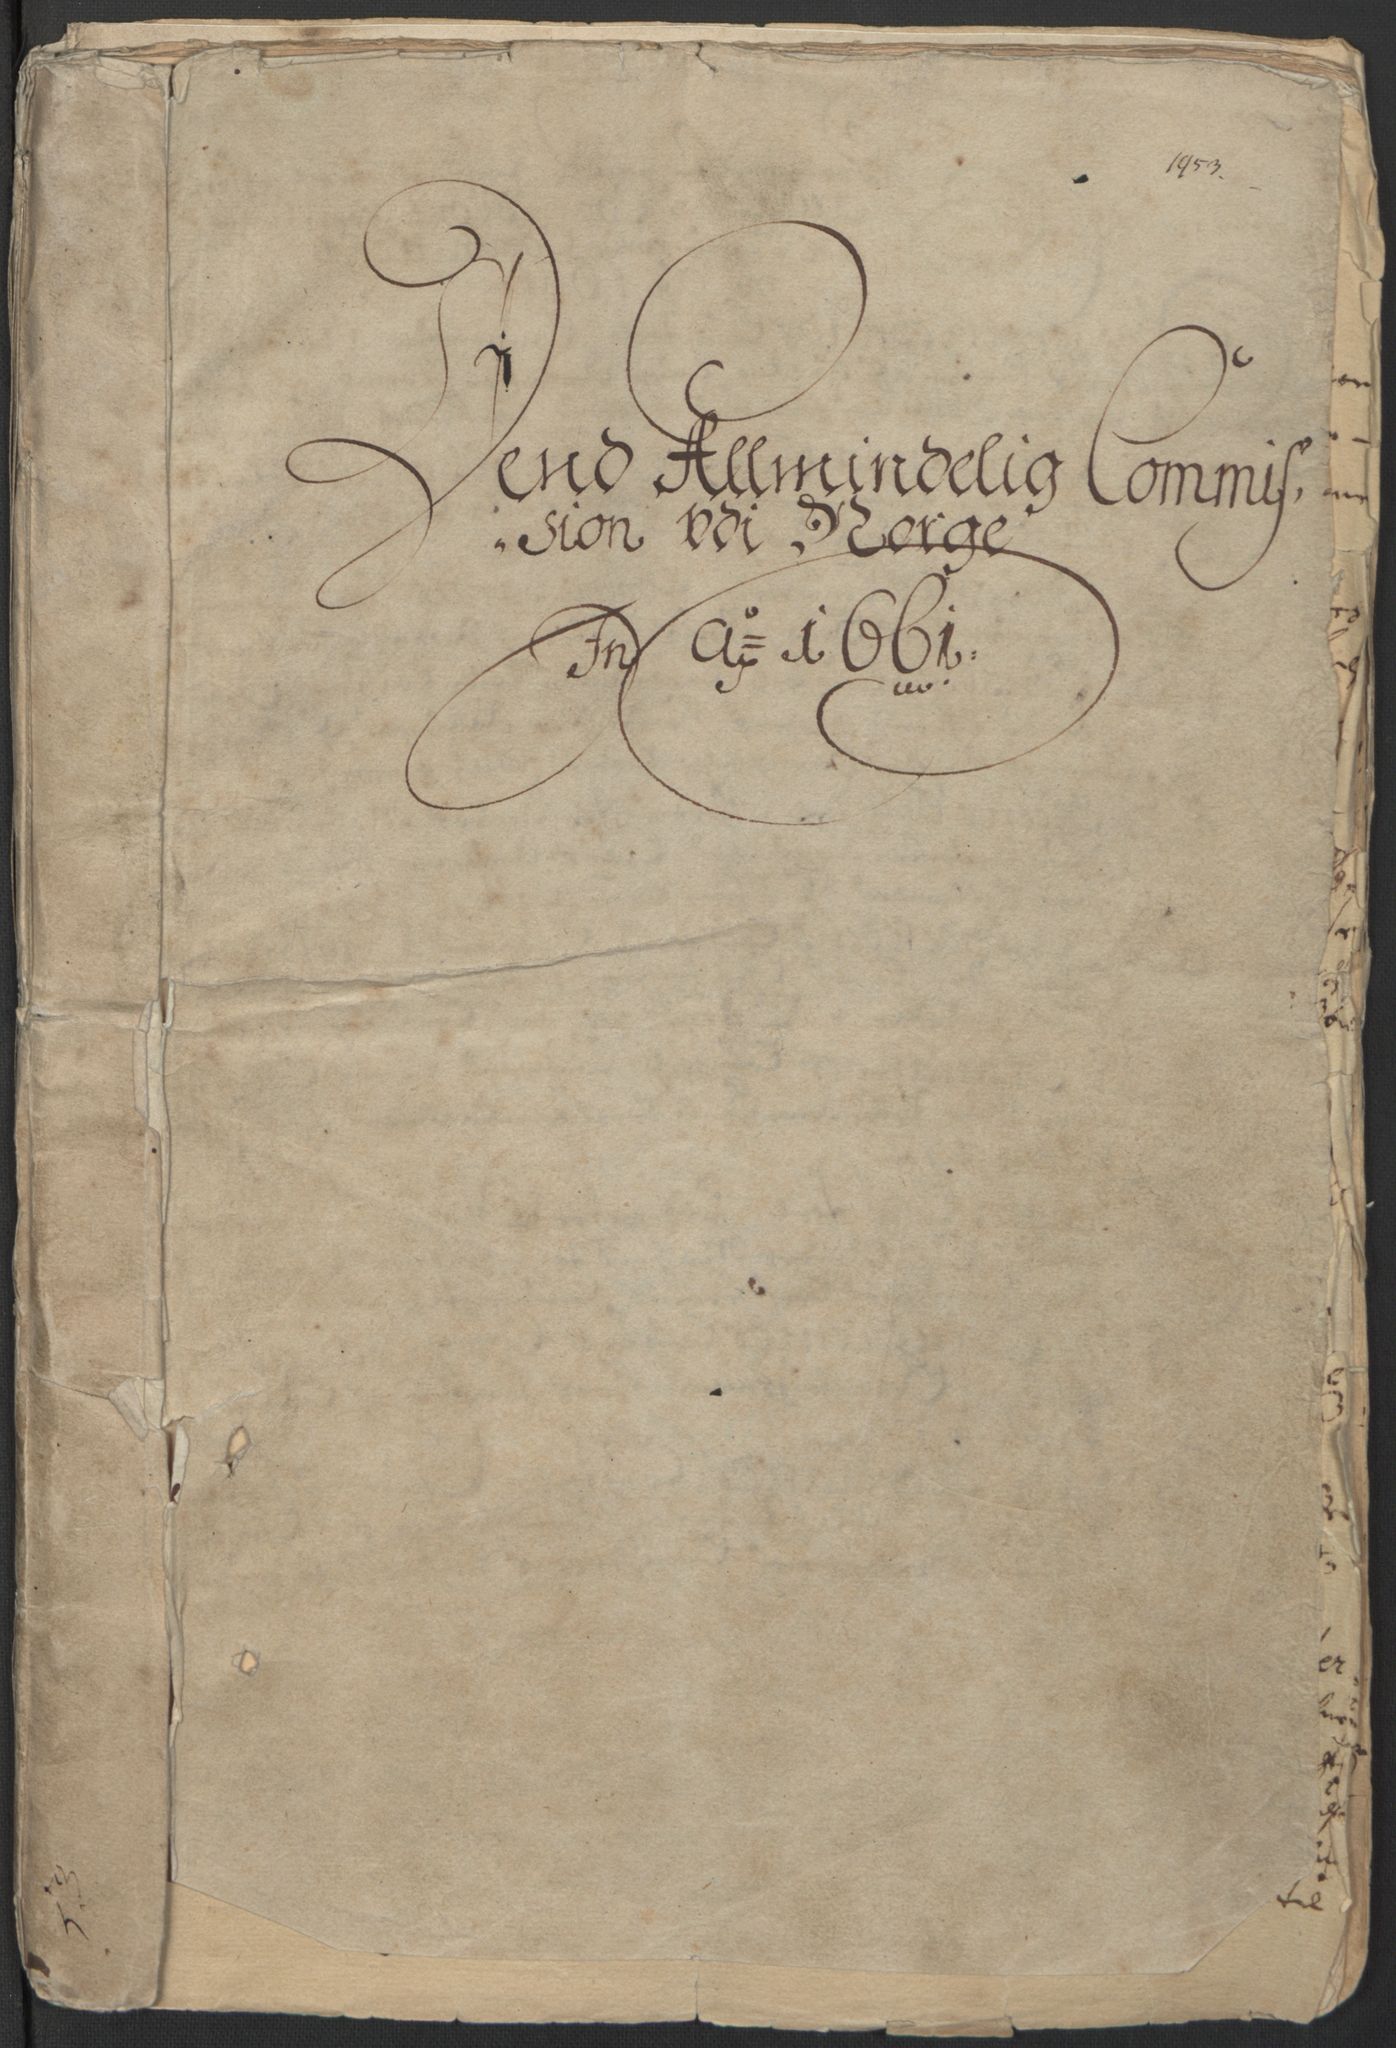 1953.
Dend Allmindelig Commis-
sion udi Norge
In Ao 1661.